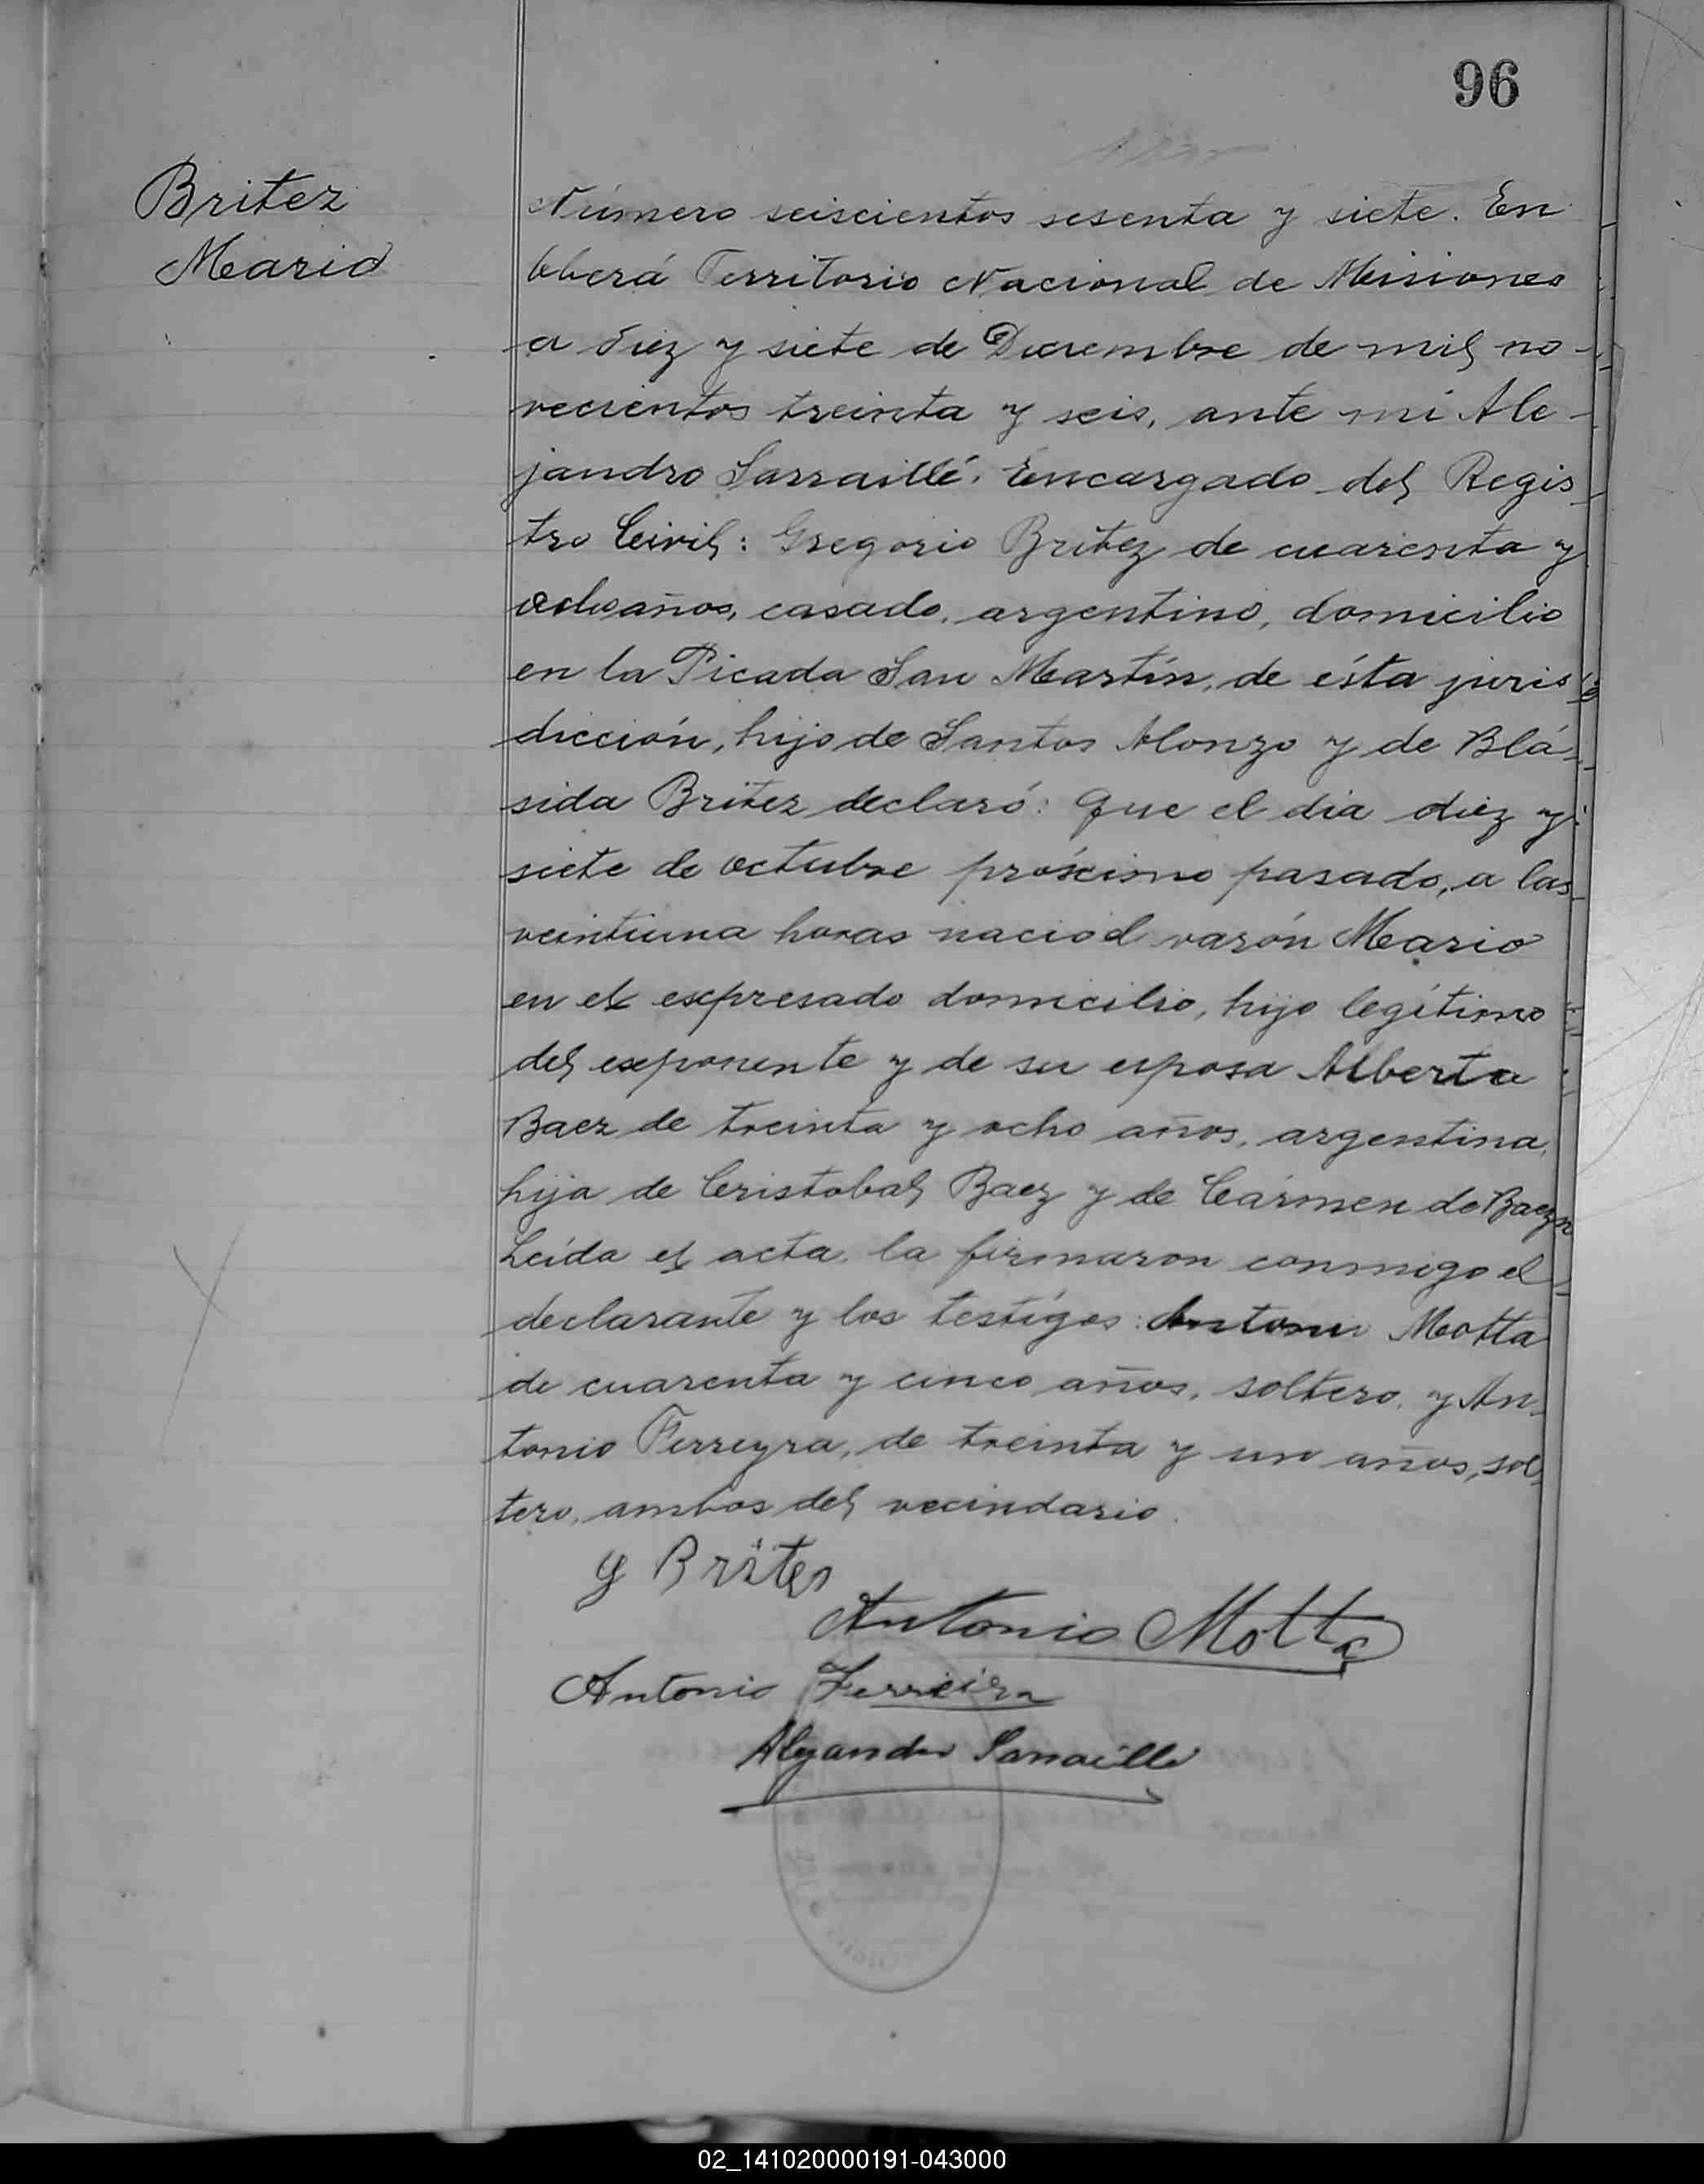 96
Britez
Mario
Número seiscientos sesenta y siete. En
Oberá Territorio Nacional de Misiones
a diez y siete de Diciembre de mil no-
vecientos treinta y seis, ante mí Ale-
jandro Sarraillé, Encargado del Regis
tro Civil: Gregorio Britez de cuarenta y
ocho años, casado, argentino, domicilio
en la Picada San Martín, de ésta juris
dicción, hijo de Santos Alonzo y de Blá-
sida Britez declaró: Que el dia diez y
siete de octubre próximo pasado, a las
veintiuna horas nació el varón Mario
en el expresado domicilio, hijo legítimo
del exponente y de su esposa Alberta
Baez de treinta y ocho años, argentina,
hija de Cristobal Baez y de Cármen de Baez
Leída el acta, la firmaron conmigo el
declarante y los testígos: Antonio Motta
de cuarenta y cinco años, soltero, y An-
tonio Ferreyra, de treinta y un años, sol
tero, ambos del vecindario.
G Brites
Antonio Motta
Antonio Ferreira
Alejandro Sarraillé
02_141020000191-043000